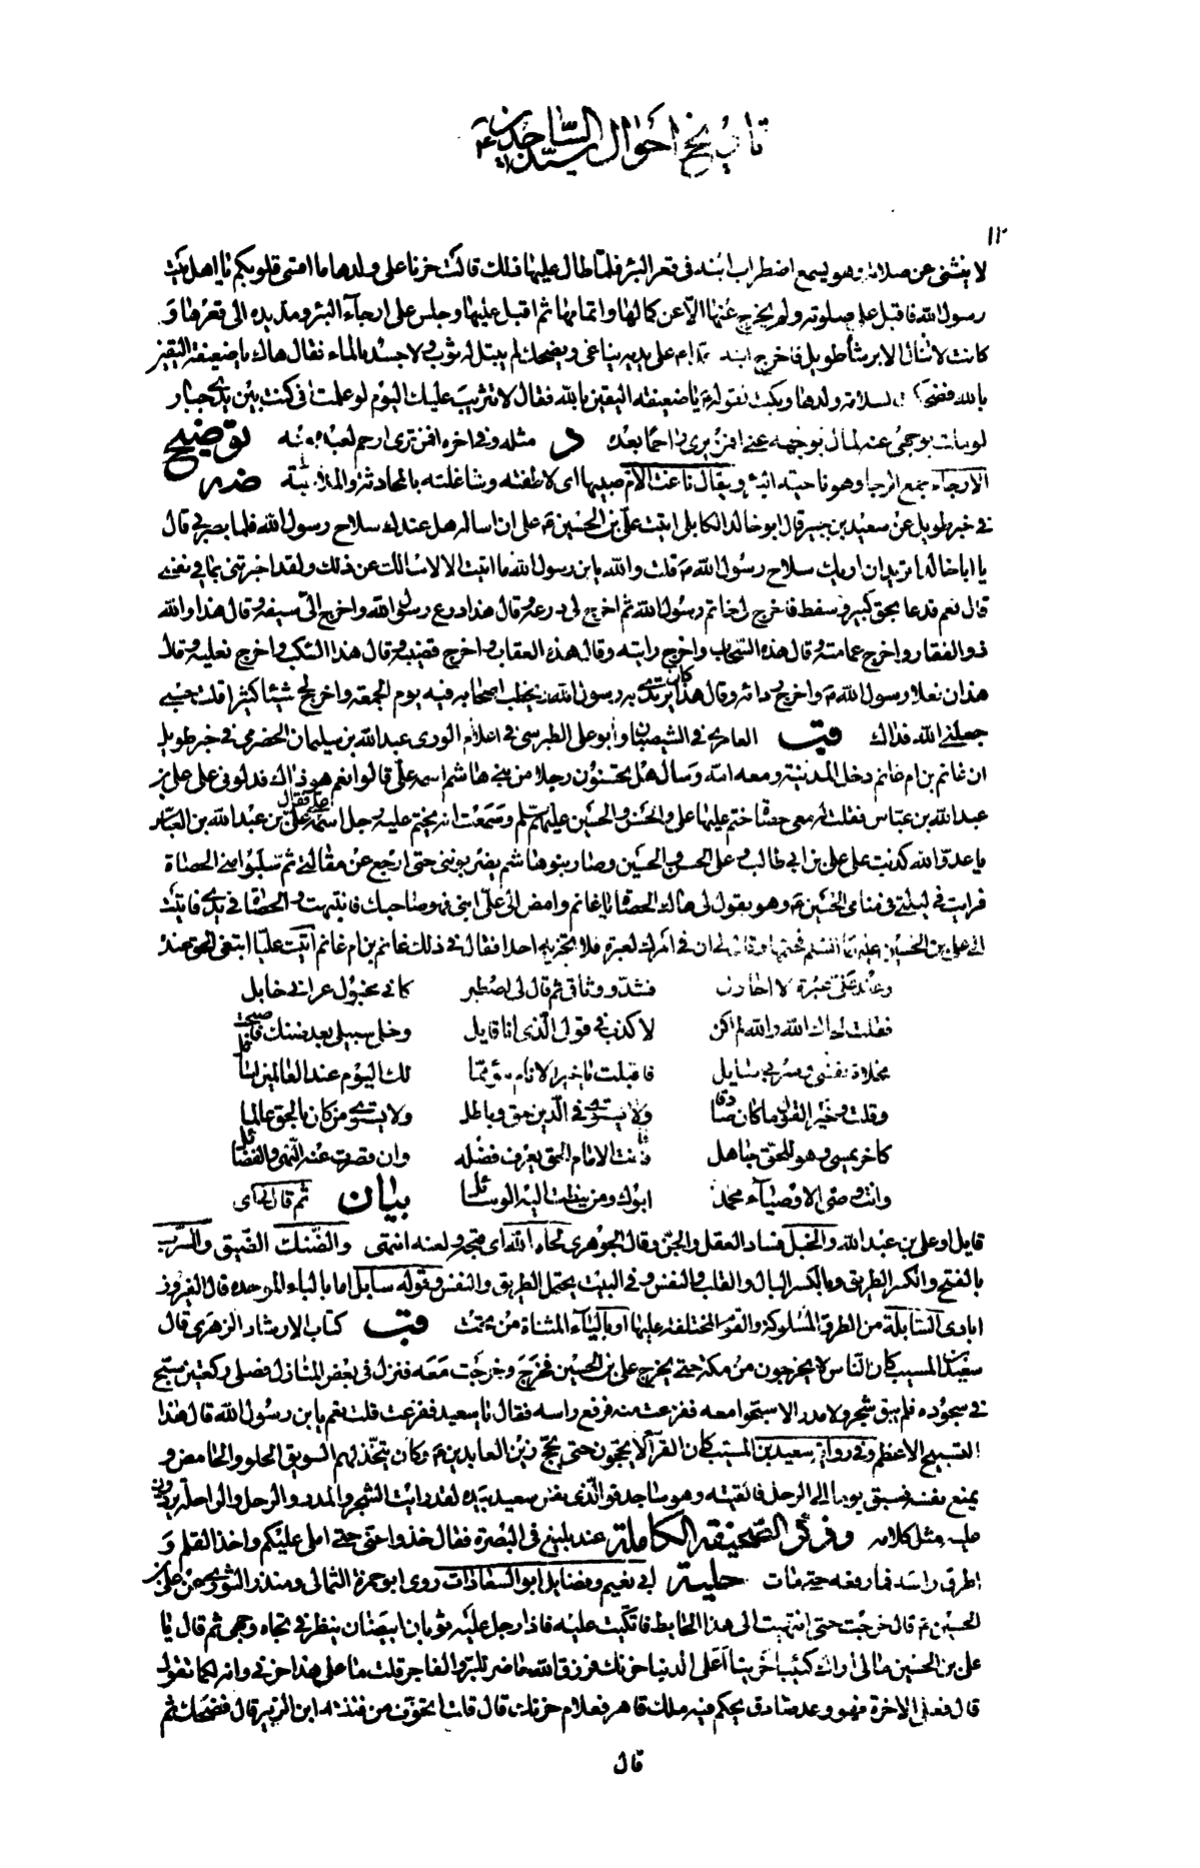 تاريخ احوال سيد الساجدين ع
١٢
لا ينثنى عن صلاته وهو يسمع اضطراب ابنه فى قعر البئر فلما طال عليها ذلك قالت حزنا على ولدها ما اقسى قلوبكم يا اهل بيت
رسول الله فاقبل على صلوته ولم يخرج عنها الا عن كمالها واتمامها ثم اقبل عليها وجلس على ارجاء البئر ومد يده الى قعرها و
كانت لا تنال الا برشأ طويل فاخرج ابنه على يديه يناغى ويضحك لم يبتل له ثوب ولا جسد بالماء فقال هاك يا ضعيفة اليقين
بالله فضحكت لسلامة ولدها وبكت لقوله ع يا ضعيفة اليقين بالله فقال لا تثريب عليك اليوم لو علمت انى كنت بين يدى جبار
لو ملت بوجهى عنه لمال بوجهه عنى افمن يرى راحما بعده د مثله وفى اخره افمن ترى ارحم لعبده منه توضيح
الارجاء جمع الرجا وهو ناحية البئر ويقال ناغت الام صبيها اى لاطفته وشاغلته بالمحادثة والملاعبة
فى خبر طويل عن سعيد بن جبير قال ابو خالد الكابلى اتيت على بن الحسين ع على ان اساله هل عندك سلاح رسول الله فلما بصر بى قال
يا ابا خالد اتريد ان اريك سلاح رسول الله ص قلت والله يا بن رسول الله ما اتيت الا لاسالك عن ذلك ولقد اخبرتنى بما فى نفسى
قال نعم فدعا بحق كبير وسفط فاخرج لى خاتم رسول الله ثم اخرج لى درعه وقال هذا درع رسول الله واخرج الى سيفه وقال هذا والله
ذو الفقار واخرج عمامته وقال هذه السحاب واخرج رايته وقال هذه العقاب واخرج قضيبه وقال هذا السكب واخرج نعليه وقال
هذان نعلا رسول الله ص واخرج رداءه وقال هذا كان يرتدى به رسول الله ويخطب اصحابه فيه يوم الجمعة واخرج لى شيئا كثيرا قلت حسبى
جعلنى الله فداك قب العامرى فى الشيصبان وابو على الطبرسى فى اعلام الورى عبد الله بن سليمان الحضرمى فى خبر طويل
ان غانم بن ام غانم دخل المدينة ومعه امه وسال هل تحسنون رجلا من بنى هاشم اسمه على قالوا نعم هو ذاك فدلونى على على بن
عبد الله بن عباس فقلت له معى حصاة ختم عليها على والحسن والحسين عليهم السلم وسمعت انه يختم عليه رجل اسمه على فقال على بن عبد الله بن العباس
يا عدو الله كذبت على على بن ابى طالب وعلى الحسن والحسين وصار بنو هاشم يضربوننى حتى ارجع عن مقالتى ثم سلبوا منى الحصاة
فرايت فى ليلتى فى منامى الحسين ع وهو يقول لى هاك الحصاة يا غانم وامض الى على ابنى فهو صاحبك فانتبهت والحصاة فى يدى فاتيت
الى على بن الحسين عليهما السلم فختمها وقال لى ان فى امرك لعبرة فلا تخبر به احدا فقال فى ذلك غانم بن ام غانم اتيت عليا ابتغى الحق عنده
وعند على عبرة لا احاول فشد وثاقى ثم قال لى اصطبر كانى مخبول عرانى خابل
فقلت لحاك الله والله لم اكن لاكذب فى قولى الذى انا قايل وخلى سبيلى بعد ضنك فاصبحت
مخلاة نفسى وسربى سايل فاقبلت يا خير الانام مؤمما لك اليوم عند العالمين اسائل
وقلت وخير القول ما كان صادقا ولا يستوى فى الدين حق وباطل ولا يستوى من كان بالحق عالما
كاخر يمسى وهو للحق جاهل فانت الامام الحق يعرف فضله وان قصرت عنه النهى والفضائل
وانت وصى الاوصياء محمد ابوك ومن نيطت اليه الوسائل بيان ثم قال لى اى
قايل او على بن عبد الله والخبل فساد العقل والجن وقال الجوهرى لحاه الله اى قبحه ولعنه انتهى والضنك الضيق والسرب
بالفتح والكسر الطريق وبالكسر البال والقلب والنفس وفى البيت يحتمل الطريق والنفس وقوله سابل اما بالباء الموحدة قال الفيروز
ابادى السابلة من الطرق المسلوكة والقوم المختلفة عليها او بالياء المثناة من تحت قب كتاب الارشاد الزهرى قال
سعيد بن المسيب كان الناس لا يخرجون من مكة حتى يخرج على بن الحسين فخرج وخرجت معه فنزل فى بعض المنازل فصلى ركعتين سبح
فى سجوده فلم يبق شجر ولا مدر الا سبحوا معه ففزعت منه فرفع راسه فقال يا سعيد ففزعت قلت نعم يا بن رسول الله قال هذا
التسبيح الاعظم وفى رواية سعيد بن المسيب كان القراء لا يحجون حتى يحج زين العابدين ع وكان يتخذ لهم السويق الحلو والحامض و
يمنع نفسه فسبق يوما الى الرحل فالفيته وهو ساجد فو الذى نفس سعيد بيده لقد رايت الشجر والمدر والرحل والراحلة يردون
عليه مثل كلامه وذكر الصحيفة الكاملة عند بليغ فى البصرة فقال خذوا عنى حتى املى عليكم واخذ القلم و
اطرق راسه فما رفعه حتى مات حلية ابى نعيم وفضايل ابو السعادات روى ابو حمزة الثمالى ومنذر الثورى عن على بن
الحسين ع قال خرجت حتى انتهيت الى هذا الحايط فاتكيت عليه فاذا رجل عليه ثوبان ابيضان ينظر فى تجاه وجهى ثم قال يا
على بن الحسين مالى اراك كئيبا حزينا اعلى الدنيا حزنك فرزق الله حاضر للبر والفاجر قلت ما على هذا حزنى وانه لكما تقول
قال فعلى الاخرة فهو وعد صادق يحكم فيه ملك قاهر فعلام حزنك قال قلت اتخوف من فتنة ابن الزبير قال فضحك ثم
قال